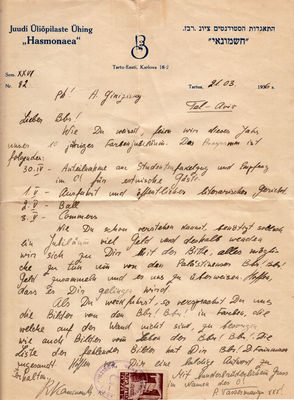 Juudi Üliõpilaste Ühing
„Hasmonaea"
התאגדות הסטודנטים ציונ. רבז.
"חשמונאי"
Tartu-Eesti, Karlova 18-2
Sem. XXVI
No. 82
Tartus, 21. 03. 1936
Tel-Aviv
Lieber Bbr!
Wie Du weisst, feiern wir dieses Jahr
unser 10 jähriges Farbenjubiläum. Das Programm ist
folgender:
30. IV - Anteilnahme am Studentenfackelzug und Empfang
im C! für estnische Gäste.
1. V - Ausfahrt und öffentliches literarisches Gericht.
2. V - Ball
3. V - Commers
Wie Du schon verstehen kannst, benötigt solch
ein Jubiläum viel Geld und deshalb wenden
wir uns zu Dir mit der Bitte, alles mögliche
zu tun um von den Palästinensern Bbr! Bbr!
Geld zusammeln und es uns zu überweisen. Hoffen,
dass es Dir gelingen wird.
Als Du weckfuhrst, so versprachst Du uns
die Bilder von den Bbr! Bbr! in Farben, die
welche auf der Wand nicht sind, zu besorgen
wie auch Bilder vom Leben der Bbr! Bbr! Die
Liste der fehlenden Bilder hat Dir Bbr!
zugesandt. Hoffen Dich eine baldige Antwort zu
erhalten.
Mit bundesbrüderlichem Gruss
im Namen des C!